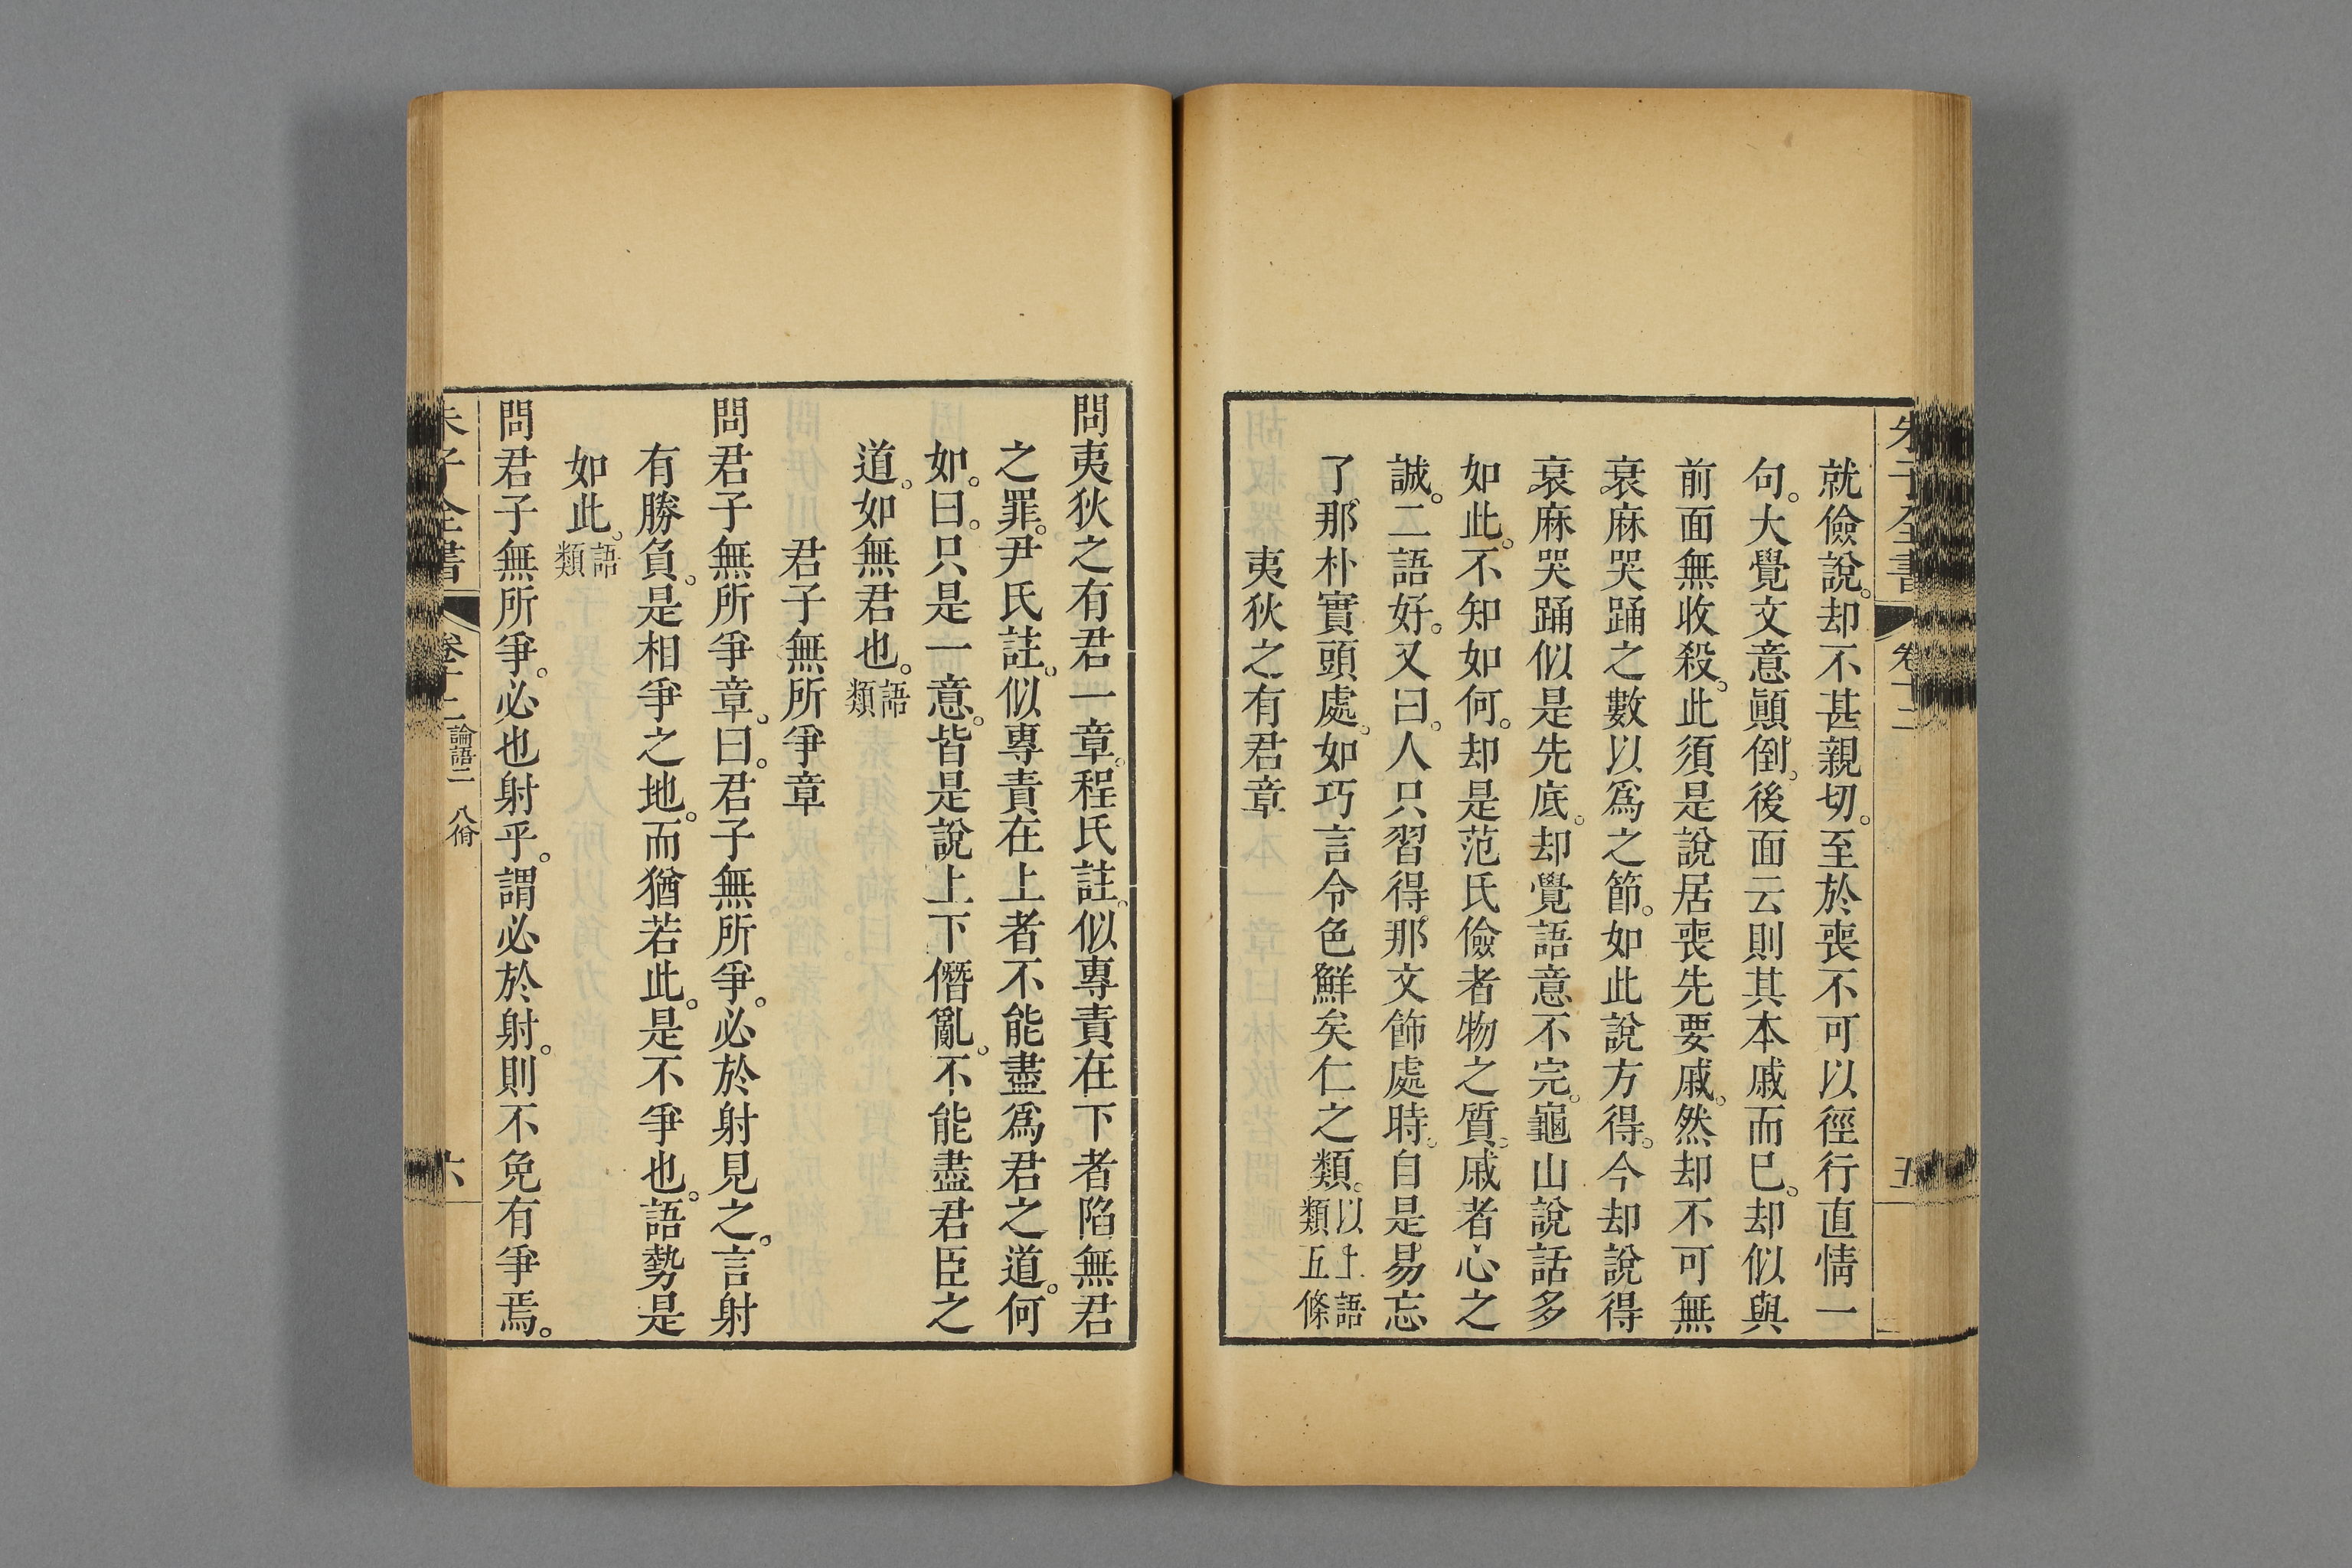 朱子全書 卷十二 五
就儉說。却不甚親切。至於喪不可以徑行直情一
句。大覺文意顚倒。後面云則其本戚而已。却似與
前面無收殺。此須是說居喪先要戚。然却不可無
衰麻哭踊之數以爲之節。如此說方得。今却說得
衰麻哭踊似是先底。却覺語意不完。龜山說話多
如此。不知如何。却是范氏儉者物之質。戚者心之
誠。二語好。又曰。人只習得那文飾處時。自是易忘
了那朴實頭處。如巧言令色鮮矣仁之類。以上語類五條
夷狄之有君章
問夷狄之有君一章。程氏註。似專責在下者陷無君
之罪。尹氏註。似專責在上者不能盡爲君之道。何
如。曰。只是一意。皆是說上下僭亂。不能盡君臣之
道。如無君也。語類
君子無所爭章
問君子無所爭章。曰。君子無所爭。必於射見之。言射
有勝負。是相爭之地。而猶若此。是不爭也。語勢是
如此。語類
問君子無所爭。必也射乎。謂必於射。則不免有爭焉。
朱子全書 卷十二 論語二 八佾 六